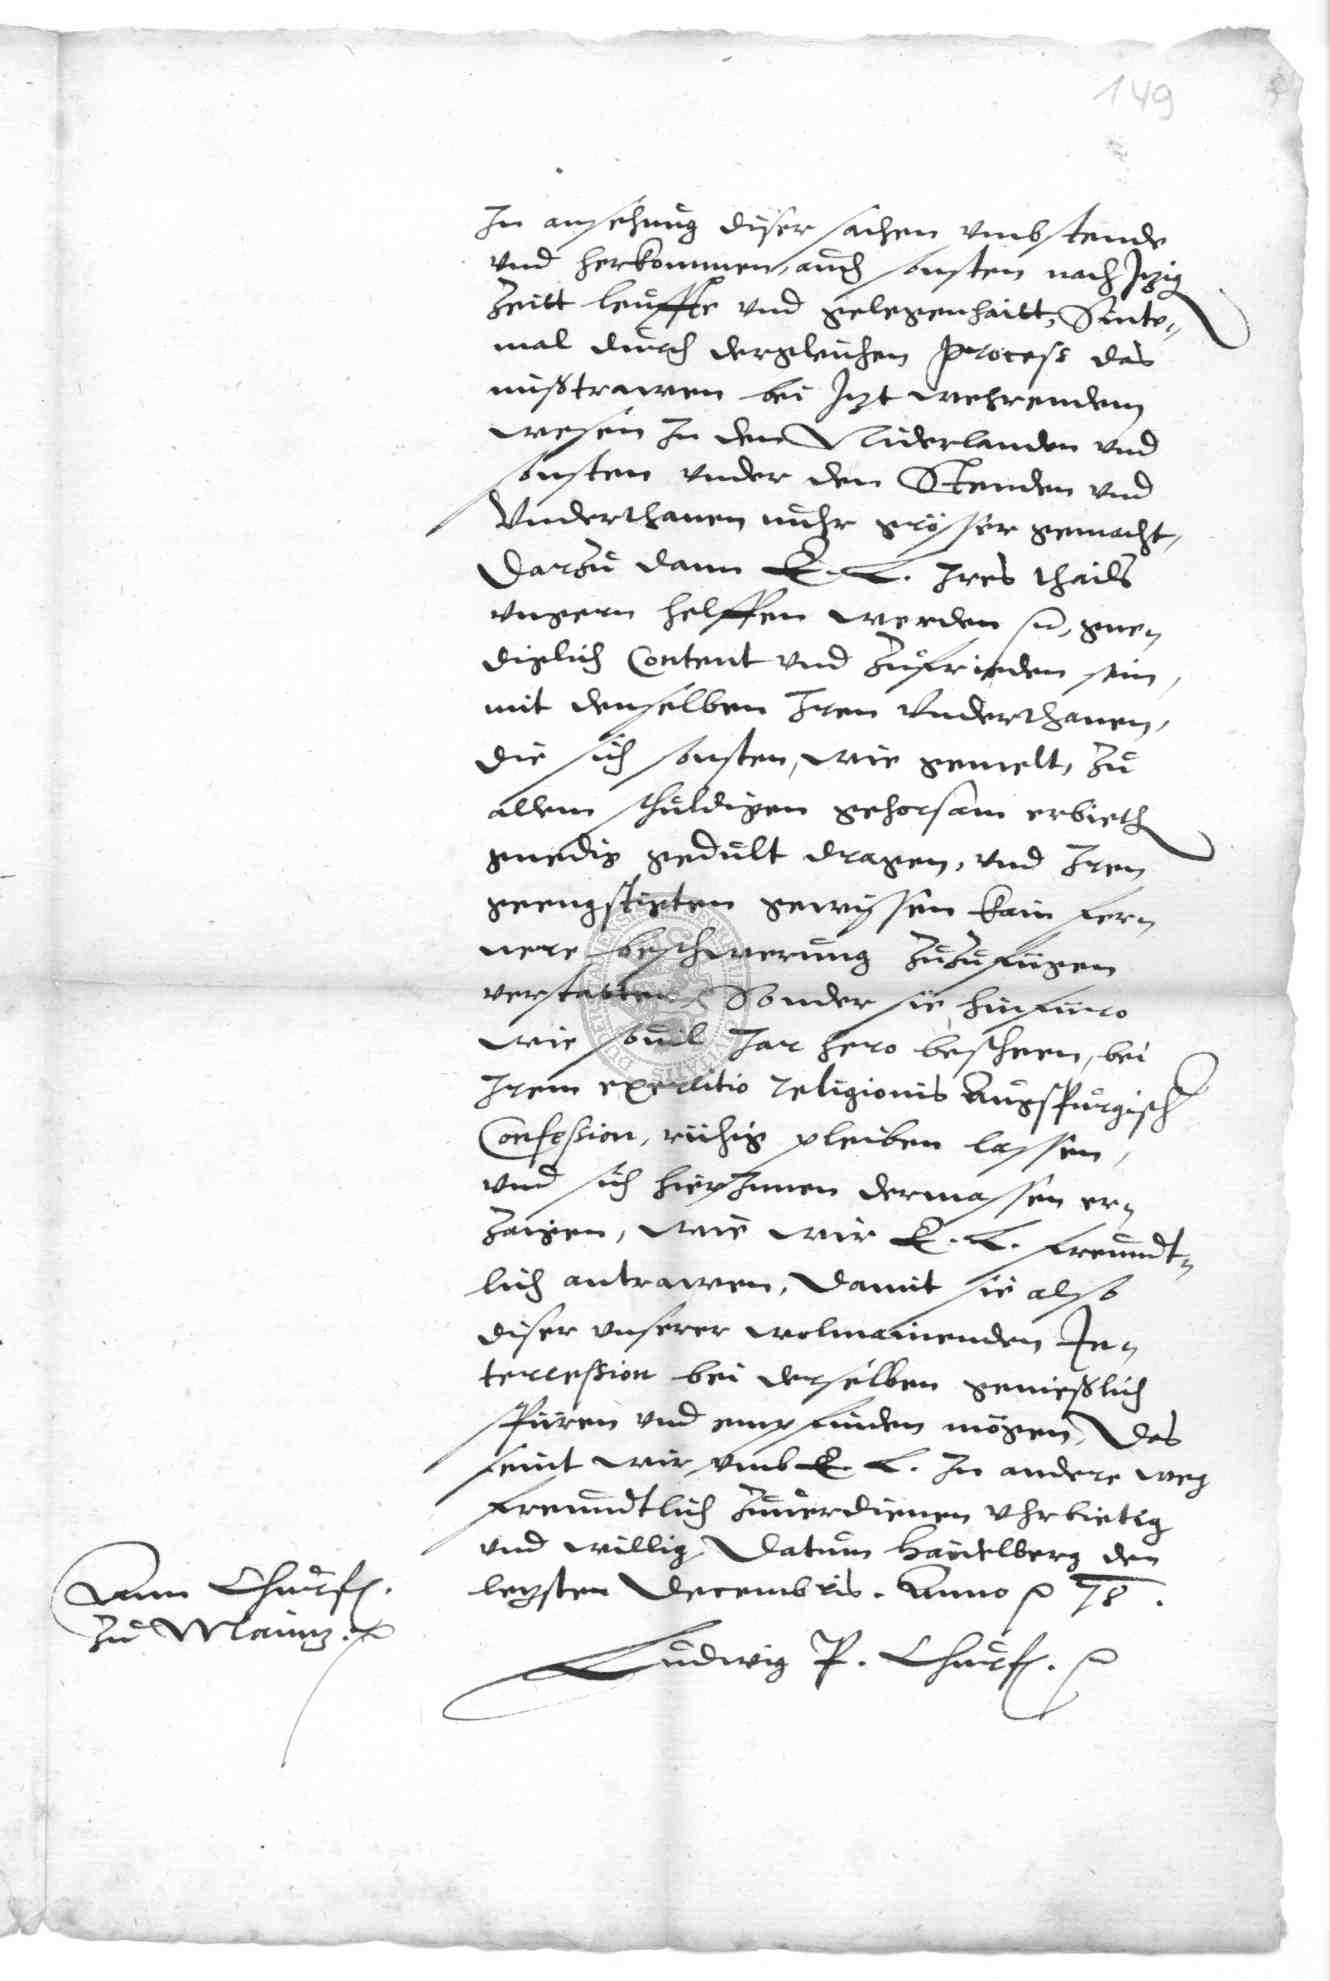 149
In ansehung diser sachen vmbstende
vnd herkommen, auch sonsten nach Jtzig
Zeitt leuffte vnd gelegenhaitt, Sinte-
mal durch dergleichen Process das
mißtrawen bei Jtzt wehrendem
wesen In den Niderlanden vnd
sonsten vnder den Stenden vnd
Vnderthanen muhr grösser gemacht,
Darzu dann E. L. Ires thails
vngern helffen werden, gne-
diglich Content vnd zufrieden sein,
mit denselben Iren Vnderthanen,
die sich sonsten, wie gemelt, zu
allem schuldigen gehorsam erbieth
gnedig gedult dragen, vnd Iren
geengstigten gewissen kain fer-
nere beschwerung zuzufügen
verstatten, Sonder sie hinfüro
wie souil Jar hero bescheen, bei
Irem exercitio religionis Augspurgisch
Confession, rühig pleiben lassen,
vnd sich hierInnen dermassen er-
zaigen, wie wir E. L. freundt-
lich antrawen, Damit sie also
diser vnserer wolmainenden In-
tercession bei derselben genießlich
spüren vnd empfinden mögen, Das
seint wir vmb E. L. In andere weg
freundtlich zuuerdienen vhrbietig
vnd willig, Datum Haidelberg den
letzsten Decembris. Anno 78.
Ann Churf.
zu Maintz.
Ludwig P. Churf.